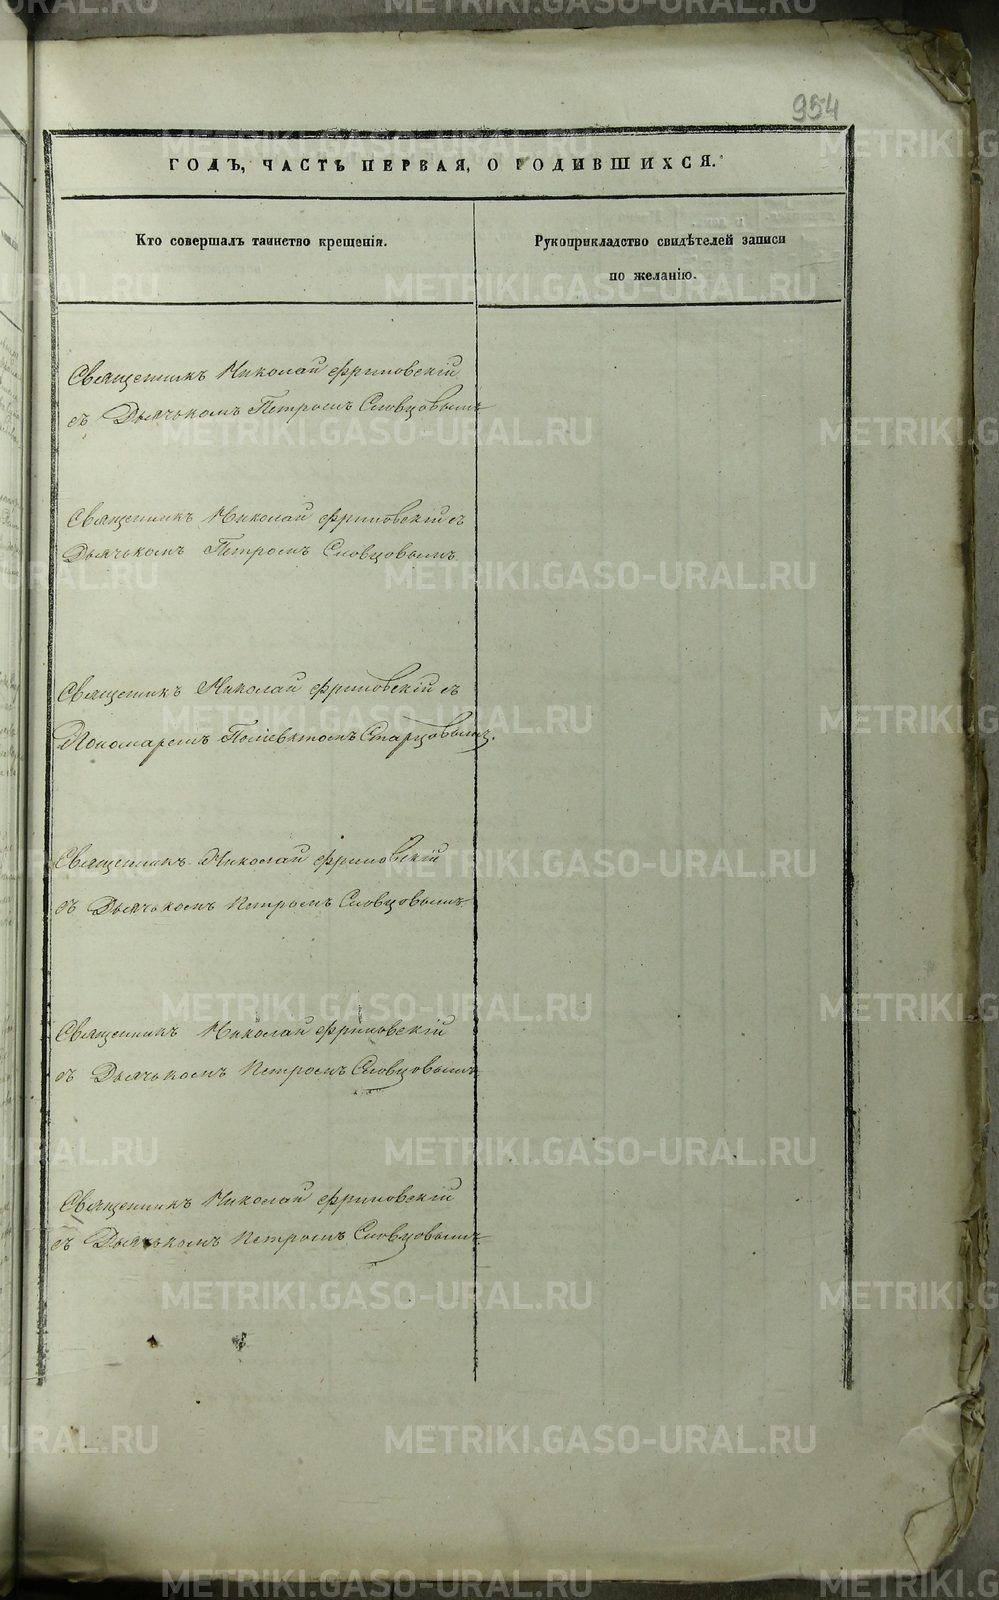 954
ГОДЪ, ЧАСТЬ ПЕРВАЯ, О РОДИВШИХСЯ.
Кто совершалъ таинство крещенія.
Рукоприкладство свидѣтелей записи
по желанію.
Священникъ Николай Фриновскій
съ Дьячькомъ Петромъ Словцовымъ
Священникъ Николай Фриновскій съ
Дьячькомъ Петромъ Словцовымъ
Священикъ Николай Фриновскій съ
Пономаремъ Поліевктомъ Старцовымъ.
Священникъ Николай Фриновскій
съ Дьячькомъ Петромъ Словцовымъ
Священникъ Николай Фриновскій
съ Дьячькомъ Петромъ Словцовымъ
Священникъ Николай Фриновскій
съ Дьячькомъ Петромъ Словцовымъ
METRIKI.GASO-URAL.RU